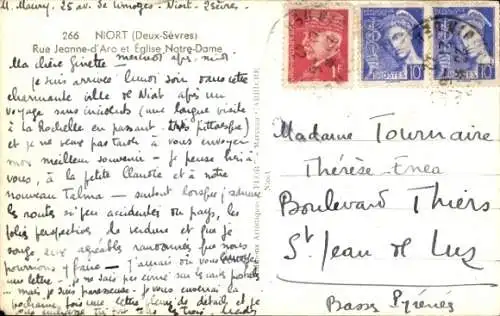 M. Maury. 25 av. de Limoges - Niort - 2 Sèvres.
266 NIORT (Deux-Sèvres)
Rue Jeanne-d'Arc et Église Notre-Dame
Ma chère Ginette mercredi après-midi
je suis arrivée lundi soir dans cette
charmante ville de Niort après un
voyage sans incidents (une longue visite
à la Rochelle en passant très pittoresque)
et je ne veux pas tarder à vous envoyer
mon meilleur souvenir - je pense
vous, à la petite Claudie et à notre
nouveau Talma - surtout lorsque
les routes si peu accidentées du pays, les
jolies perspectives de verdure et que je
songe aux agréables randonnées que nous
pourrions y faire - j'aurais dû vous envoyer
une lettre - je ne sais pas sur les cartes postales
- mais je suis paresseuse. je vous enverrai la
prochaine fois une lettre pleine de détails et je
vous embrasse tous les trois
Madame Tournaire
Thérèse-Enea
Boulevard Thiers
St Jean de Luz
Basses Pyrénées
1F
POSTES 10
POSTES 10